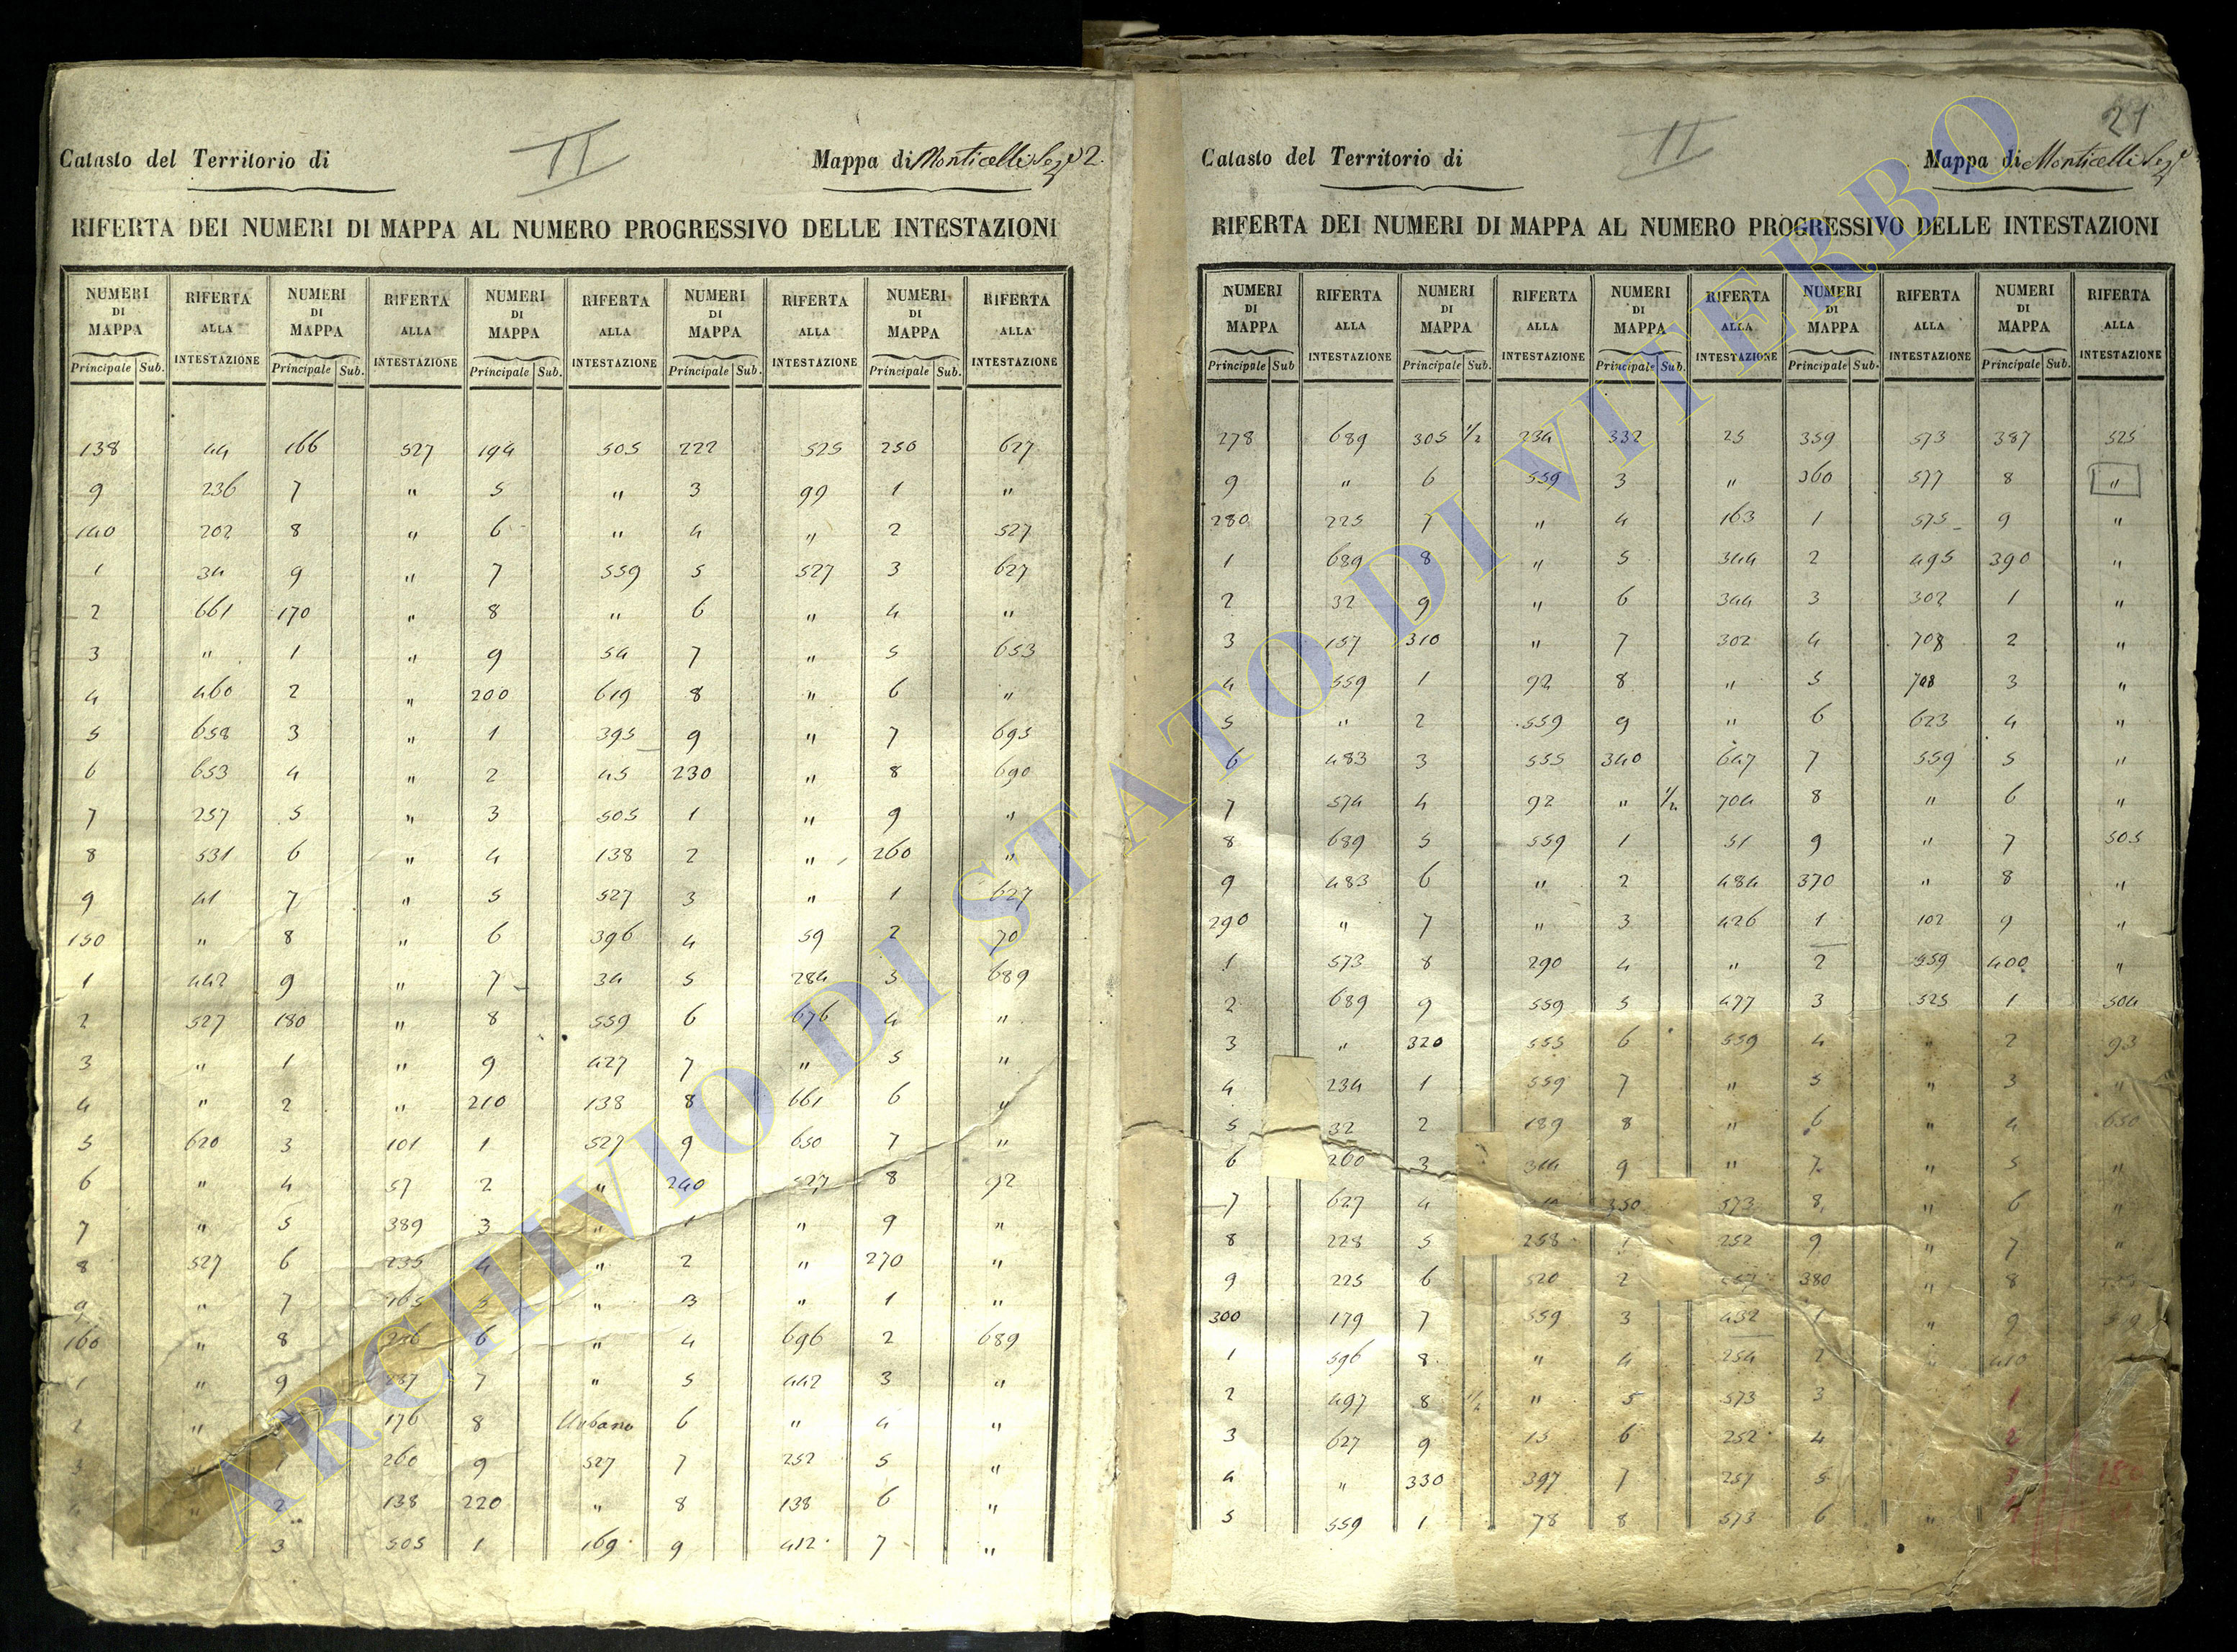 Catasto del Territorio di II Mappa di Monticelli Sez.e 2.
RIFERTA DEI NUMERI DI MAPPA AL NUMERO PROGRESSIVO DELLE INTESTAZIONI
NUMERI RIFERTA NUMERI RIFERTA NUMERI RIFERTA NUMERI RIFERTA NUMERI RIFERTA
DI DI DI DI DI
MAPPA ALLA MAPPA ALLA MAPPA ALLA MAPPA ALLA MAPPA ALLA
INTESTAZIONE INTESTAZIONE INTESTAZIONE INTESTAZIONE INTESTAZIONE
Principale Sub. Principale Sub. Principale Sub. Principale Sub. Principale Sub.
138 44 166 527 194 505 222 525 250 627
9 236 7 " 5 " 3 99 1 "
140 202 8 " 6 " 4 " 2 527
1 34 9 " 7 559 5 527 3 627
2 661 170 " 8 " 6 " 4 "
3 " 1 " 9 54 7 " 5 653
4 460 2 " 200 619 8 " 6 "
5 658 3 " 1 395 9 " 7 695
6 653 4 " 2 45 230 " 8 690
7 257 5 " 3 505 1 " 9 "
8 531 6 " 4 138 2 " 260 "
9 41 7 " 5 527 3 " 1 627
150 " 8 " 6 396 4 59 2 70
1 442 9 " 7 34 5 284 3 689
2 527 180 " 8 559 6 676 4 "
3 " 1 " 9 427 7 " 5 "
4 " 2 " 210 138 8 661 6 "
5 620 3 101 1 527 9 650 7 "
6 " 4 57 2 " 240 527 8 92
7 " 5 389 3 " 1 " 9 "
8 527 6 235 4 " 2 " 270 "
9 " 7 165 5 " 3 " 1 "
160 " 8 6 " 4 696 2 689
1 " 9 7 " 5 442 3 "
2 " 176 8 Urbano 6 " 4 "
3 260 9 527 7 252 5 "
" 2 138 220 " 8 138 6 "
3 505 1 169 9 412 7 "
Catasto del Territorio di II Mappa di Monticelli Sez.e
21
RIFERTA DEI NUMERI DI MAPPA AL NUMERO PROGRESSIVO DELLE INTESTAZIONI
NUMERI RIFERTA NUMERI RIFERTA NUMERI RIFERTA NUMERI RIFERTA NUMERI RIFERTA
DI DI DI DI DI
MAPPA ALLA MAPPA ALLA MAPPA ALLA MAPPA ALLA MAPPA ALLA
INTESTAZIONE INTESTAZIONE INTESTAZIONE INTESTAZIONE INTESTAZIONE
Principale Sub Principale Sub. Principale Sub. Principale Sub. Principale Sub.
278 689 305 1/2 234 332 25 359 573 387 525
9 " 6 559 3 " 360 577 8 "
280 225 7 " 4 163 1 575 9 "
1 689 8 " 5 344 2 495 390 "
2 32 9 " 6 344 3 302 1 "
3 157 310 " 7 302 4 708 2 "
4 559 1 92 8 " 5 708 3 "
5 " 2 559 9 " 6 623 4 "
6 483 3 555 340 647 7 559 5 "
7 574 4 92 " 1/2 704 8 " 6 "
8 689 5 559 1 51 9 " 7 505
9 483 6 " 2 484 370 " 8 "
290 " 7 " 3 426 1 102 9 "
1 573 8 290 4 " 2 559 400 "
2 689 9 559 5 477 3 525 1 504
3 " 320 555 6 559 4 " 2 93
4 234 1 559 7 " 5 " 3 "
5 32 2 189 8 " 6 " 4 650
6 260 3 344 9 " 7 " 5 "
7 627 4 350 573 8 " 6 "
8 228 5 258 1 252 9 " 7 "
9 225 6 520 2 380 " 8
300 179 7 559 3 452 1 " 9
1 596 8 " 4 254 2 410
2 497 8 1/2 " 5 573 3 1
3 627 9 15 6 252 4 2
4 " 330 397 7 257 5 3
5 559 1 78 8 573 6 "
ARCHIVIO DI STATO DI VITERBO